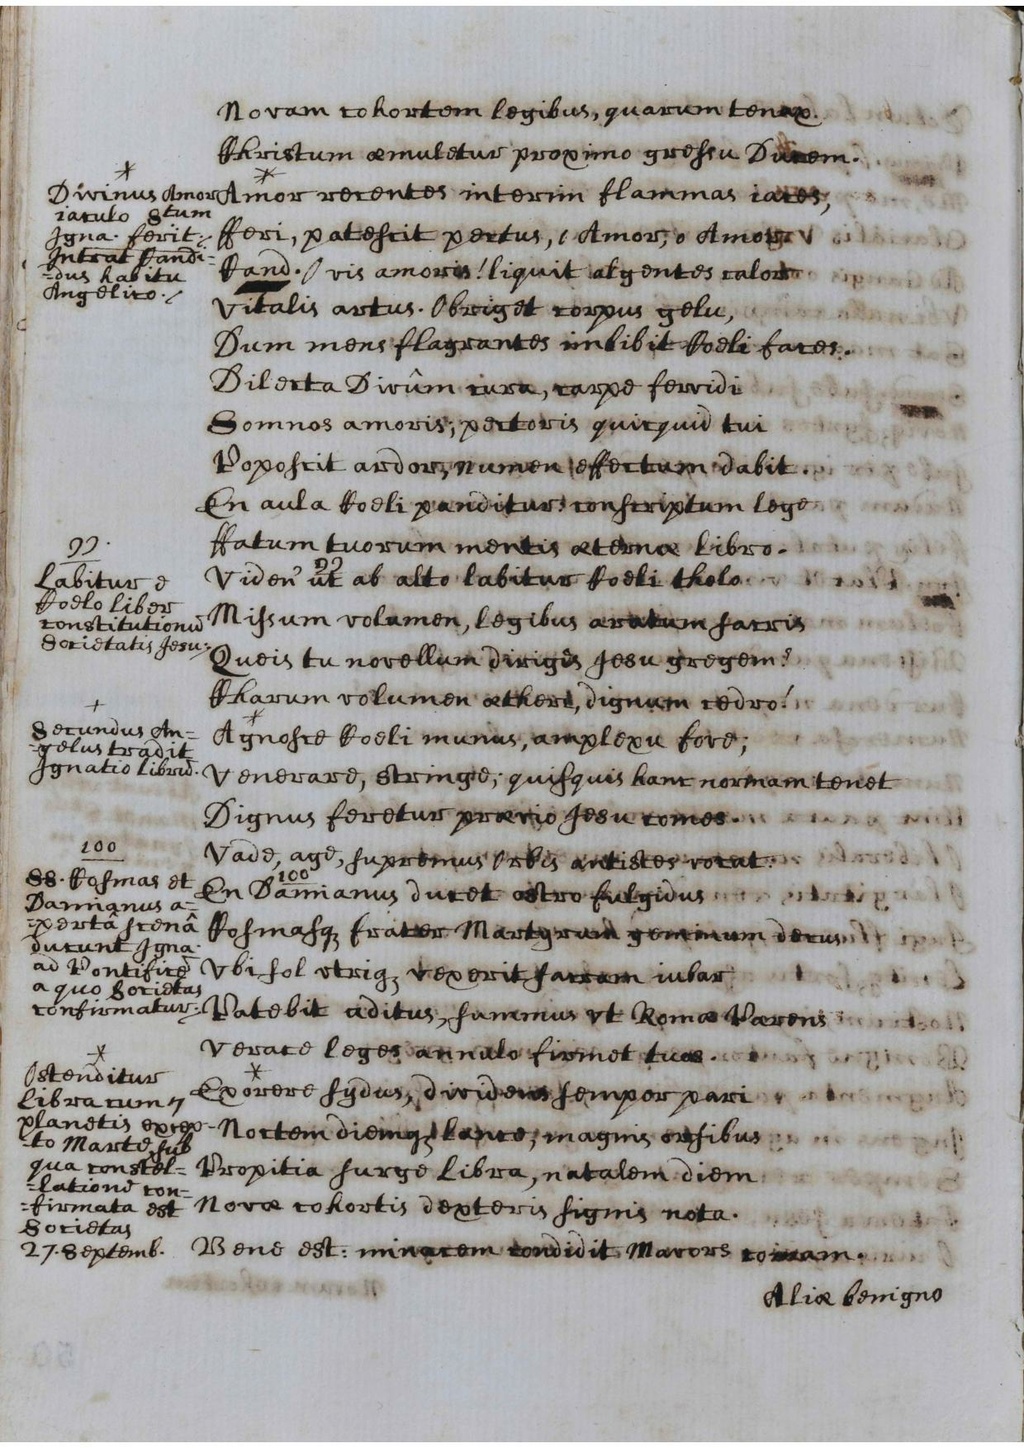 Novam cohortem legibus, quarum tenax
Christum æmuletur proximo gressu Ducem.
*
Divinus Amor
iaculo Stum
Igna. ferit.
Intrat Candi-
-dus habitu
Angelico./
*
Amor recentes interim flammas iaces,
Feri, patescit pectus, ô Amor, o Amor
Cand. O vis amoris! liquit algentes calor
Vitalis artus. Obriget corpus gelu,
Dum mens flagrantes imbibit Coeli faces.
Dilecta Divûm cura, carpe fervidi
Somnos amoris; pectoris quicquid tui
Poposcit ardor, numen effectum dabit.
En aula Coeli panditur: conscriptum lege
Fatum tuorum mentis æternæ libro.
99.
Labitur e
Coelo liber
constitutionū
Societatis Jesu;
Viden' ut 99 ab alto labitur Coeli tholo
Missum volumen, legibus aratum sacris
Queis tu novellum dirigis Jesu gregem?
Charum volumen ætheri, dignum cedro!
+
Secundus An=
-gelus tradit
Ignatio librū.
*
Agnosce Coeli munus, amplexu fove;
Venerare, stringe; quisquis hanc normam tenet
Dignus feretur prævio Jesu comes.
Vade, age, supremus Orbis antistes vocat.
100
SS. Cosmas et
Damianus a-
-pertâ scenâ
ducunt Igna.
ad Pontificē
a quo Societas
confirmatur;
100
En Damianus ducet ostro fulgidus
Cosmasq; frater Martyrum geminum decus
Vbi sol utriq; vexerit sacram iubar
Patebit aditus, summus vt Romæ Parens
Verace leges annulo firmet tuas.
*
Ostenditur
Libra cum 7
planetis excep-
to Marte, sub
qua constel=
-latione con-
-firmata est
Societas
27. Septemb.
*
Exorere sydus, dividens semper pari
Noctem diemq; lance; magnis orsibus
Propitia surge Libra, natalem diem
Novæ cohortis dexteris signis nota.
Bene est: minacem condidit Mavors comam.
Aliæ benigno